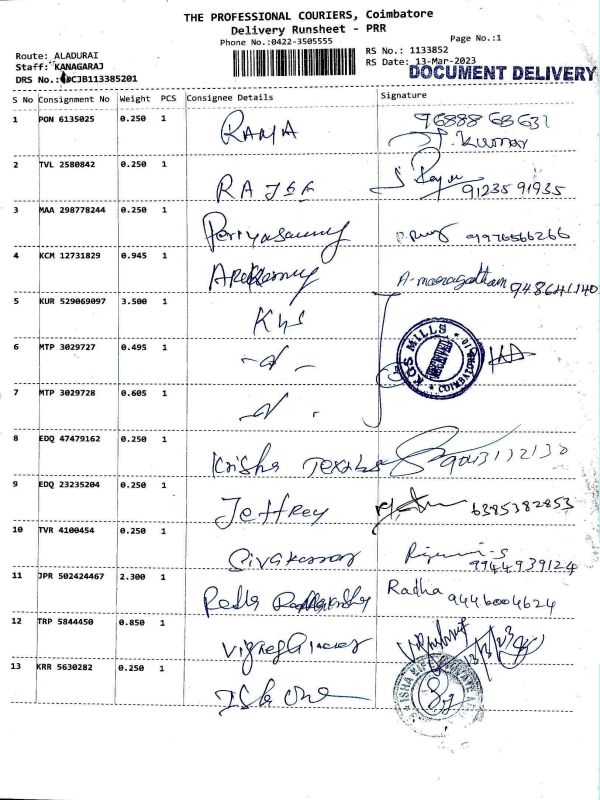 THE PROFESSIONAL COURIERS, Coimbatore
Delivery Runsheet - PRR
Phone No.:0422-3505555
Page No.:1
Route: ALADURAI
RS No.: 1133852
Staff: KANAGARAJ
RS Date: 13-Mar-2023
DRS No.: PCJB113385201
DOCUMENT DELIVERY
S No Consignment No Weight PCS Consignee Details Signature
1 PON 6135025 0.250 1 RAMA 96888 68631
P. Kumar
2 TVL 2580842 0.250 1 RAJSE
9123591935
3 MAA 298778244 0.250 1 Periyasamy 9976566266
4 KCM 12731829 0.945 1 A. maragatham 948641140
5 KUR 529069097 3.500 1 KGS
KGS MILLS
COIMBATORE
6 MTP 3029727 0.495 1
7 MTP 3029728 0.605 1
8 EDQ 47479162 0.250 1 Krisha
9 EDQ 23235204 0.250 1 Jeffrey 6385382853
10 TVR 4100454 0.250 1 Sivakumar
9944939124
11 JPR 502424467 2.300 1 Radha Radha
9446004624
12 TRP 5844450 0.850 1
13/3/23
13 KRR 5630282 0.250 1
ISHA